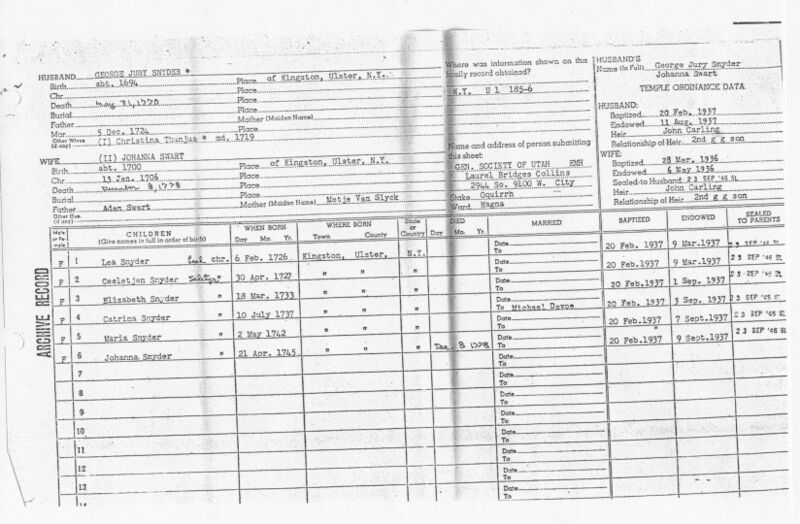 HUSBAND GEORGE JURY SNYDER *
Birth abt. 1694 Place of Kingston, Ulster, N.Y.
Chr. Place
Death May 31, 1770 Place
Burial Place
Father Mother (Maiden Name)
Mar. 5 Dec. 1724 Place
Other Wives (if any) (I) Christina Thunjus * md. 1719
WIFE (II) JOHANNA SWART
Birth abt. 1700 Place of Kingston, Ulster, N.Y.
Chr 13 Jan. 1706 Place
Death December 8, 1778 Place
Burial Place
Father Adam Swart Mother (Maiden Name) Metje Van Slyck
Other Hus. (if any)
Where was information shown on this family record obtained?
N.Y. U 1 185-6
Name and address of person submitting this sheet:
GEN. SOCIETY OF UTAH EMH
Laurel Bridges Collins
2944 So. 9100 W. City
Stake Oquirrh
Ward Magna
HUSBAND'S Name (in Full) George Jury Snyder
Johanna Swart
TEMPLE ORDINANCE DATA
HUSBAND:
Baptized 20 Feb. 1937
Endowed 11 Aug. 1937
Heir John Carling
Relationship of Heir 2nd g g son
WIFE:
Baptized 28 Mar. 1936
Endowed 6 May 1936
Sealed to Husband 23 SEP '46 SL
Heir John Carling
Relationship of Heir 2nd g g son
ARCHIVE RECORD
Male or Female CHILDREN (Give names in full in order of birth) WHEN BORN Day Mo. Yr. WHERE BORN Town County State or Country DIED Day Mo. Yr. MARRIED BAPTIZED ENDOWED SEALED TO PARENTS
F 1 Lea Snyder chr. 6 Feb. 1726 Kingston, Ulster, N.Y. Date To 20 Feb. 1937 9 Mar. 1937 23 SEP '46 SL
F 2 Ceeletjen Snyder " 30 Apr. 1727 " " " Date To 20 Feb. 1937 9 Mar. 1937 23 SEP '46 SL
F 3 Elizabeth Snyder " 18 Mar. 1733 " " " Date To 20 Feb. 1937 1 Sep. 1937 23 SEP '46 SL
F 4 Catrina Snyder " 10 July 1737 " " " Date To Michael Devoe 20 Feb. 1937 3 Sep. 1937 23 SEP '46 SL
F 5 Maria Snyder " 2 May 1742 " " " Date To 20 Feb. 1937 7 Sept. 1937 23 SEP '46 SL
F 6 Johanna Snyder " 21 Apr. 1745 " " " Dec. 8 1778 Date To 20 Feb. 1937 9 Sept. 1937 23 SEP '46 SL
7 Date To
8 Date To
9 Date To
10 Date To
11 Date To
12 Date To
13 Date To